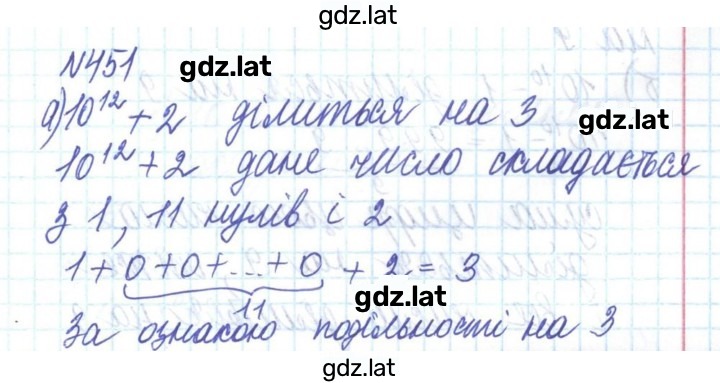 gdz.lat
№451
gdz.lat
а) 10¹² + 2 ділиться на 3
gdz.lat
10¹² + 2 дане число складається
з 1, 11 нулів і 2
1 + 0 + 0 + ... + 0 + 2 = 3
11
gdz.lat
За ознакою подільності на 3
gdz.lat